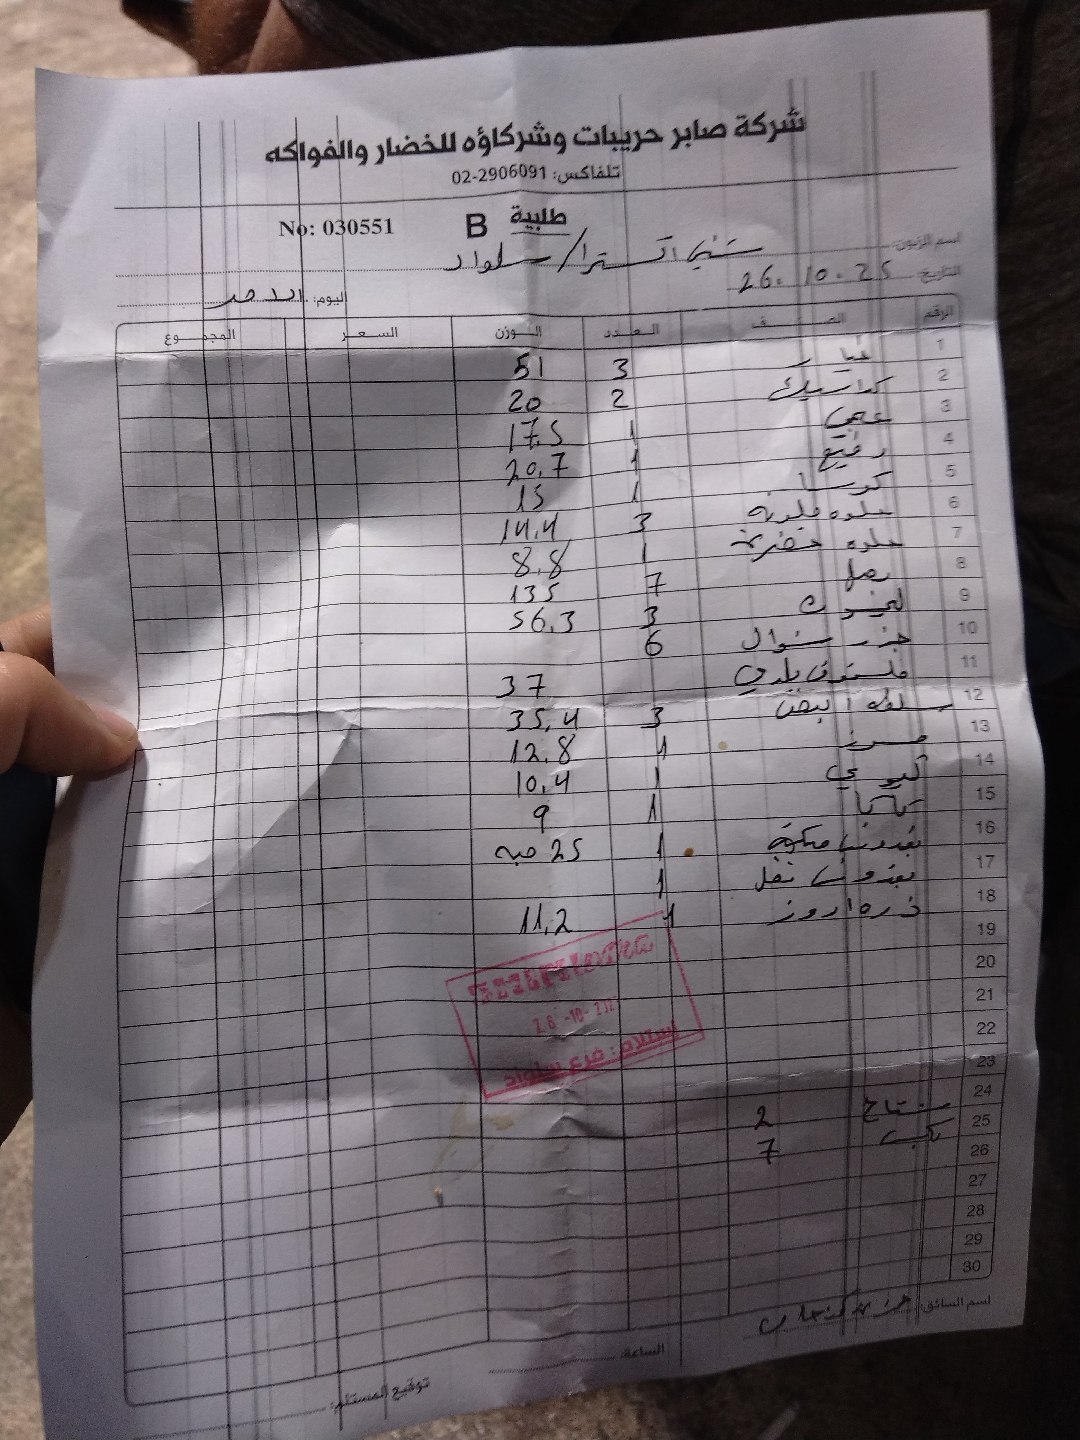 شركة صابر حريبات وشركاؤه للخضار والفواكه
تلفاكس: 02-2906091
طلبية B No: 030551
اسم الزبون: اكسترا/ سلواد
التاريخ: 26.10.25
اليوم: الاحد
الرقم الصنف العدد الوزن السعر المجموع
1 خيار 3 51
2 كلاسيك 2 20
3 عجمي 1 17.5
4 رفيع 1 20,7
5 كوسا 1 15
6 حلوه ملونه 3 14,4
7 حلوه خضراء 1 8,8
8 بصل 7 135
9 3 56,3
10 جزر شوال 6
11 بلدي 37
12 ابيض 3 35,4
13 موز 1 12,8
14 كيوي 1 10,4
15 كاكا 1 9
16 بقدونس 1 25 حبه
17 بقدونس 1
18 ذره 1 11,2
19
20
21
22
23
24
25 مشتاح 2
26 7
27
28
29
30
استلام : فرع سلواد
اسم السائق:
الساعة:
توقيع المستلم: